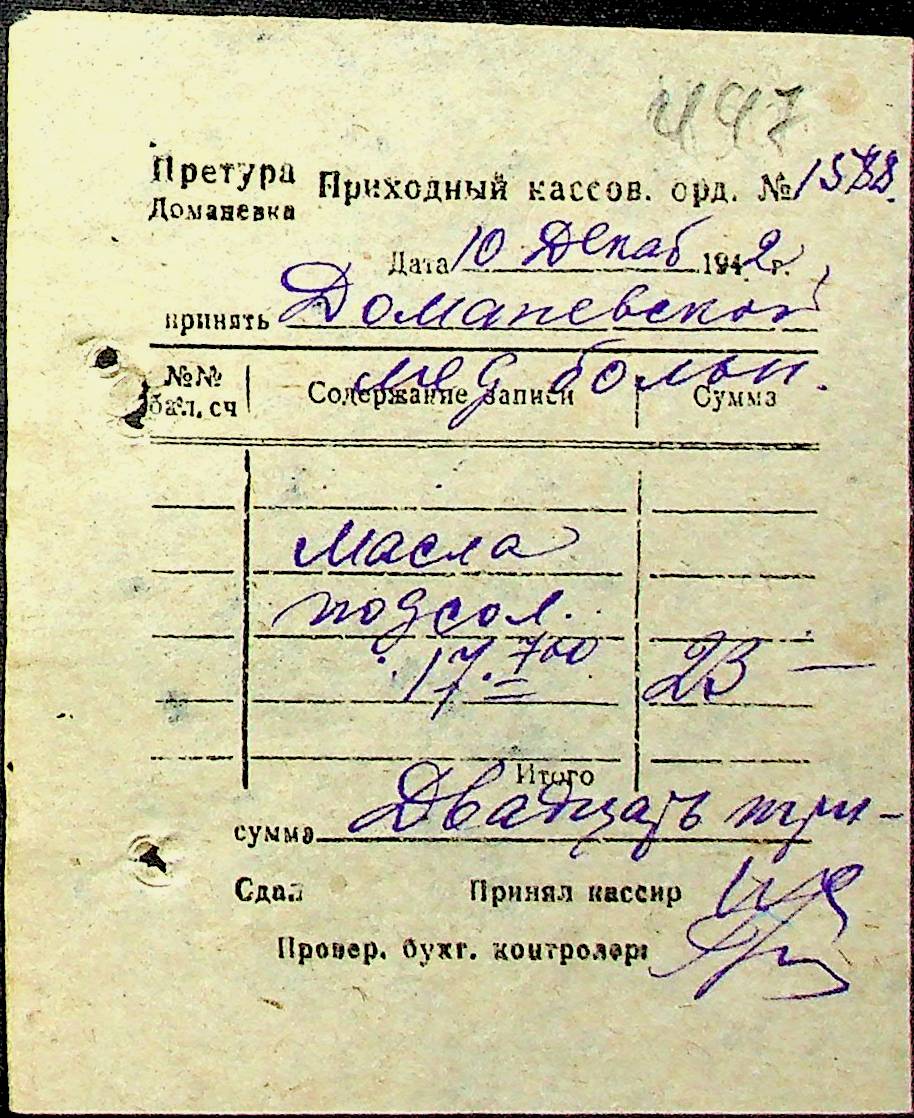 447
Претура Приходный кассов. орд. № 1588.
Доманевка
Дата 10 Декаб 1942 г.
принять Доманевской
мед больн.
№№ бал. сч Содержание записи Сумма
Масла
подсол.
17.700 23 —
Итого
сумма Двадцать три —
Сдал Принял кассир
Провер. бухг. контролер